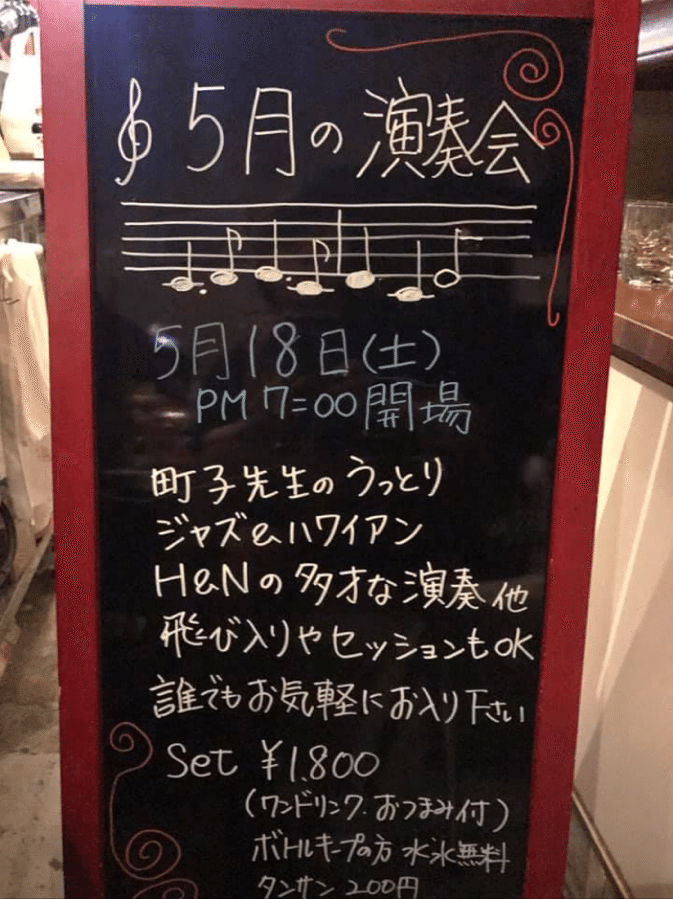 5月の演奏会
5月18日(土)
PM 7=00 開場
町子先生のうっとり
ジャズ&ハワイアン
H&Nの多才な演奏他
飛び入りやセッションもOK
誰でもお気軽にお入り下さい
Set ¥1.800
(ワンドリンク.おつまみ付)
ボトルキープの方 水氷無料
タンサン 200円